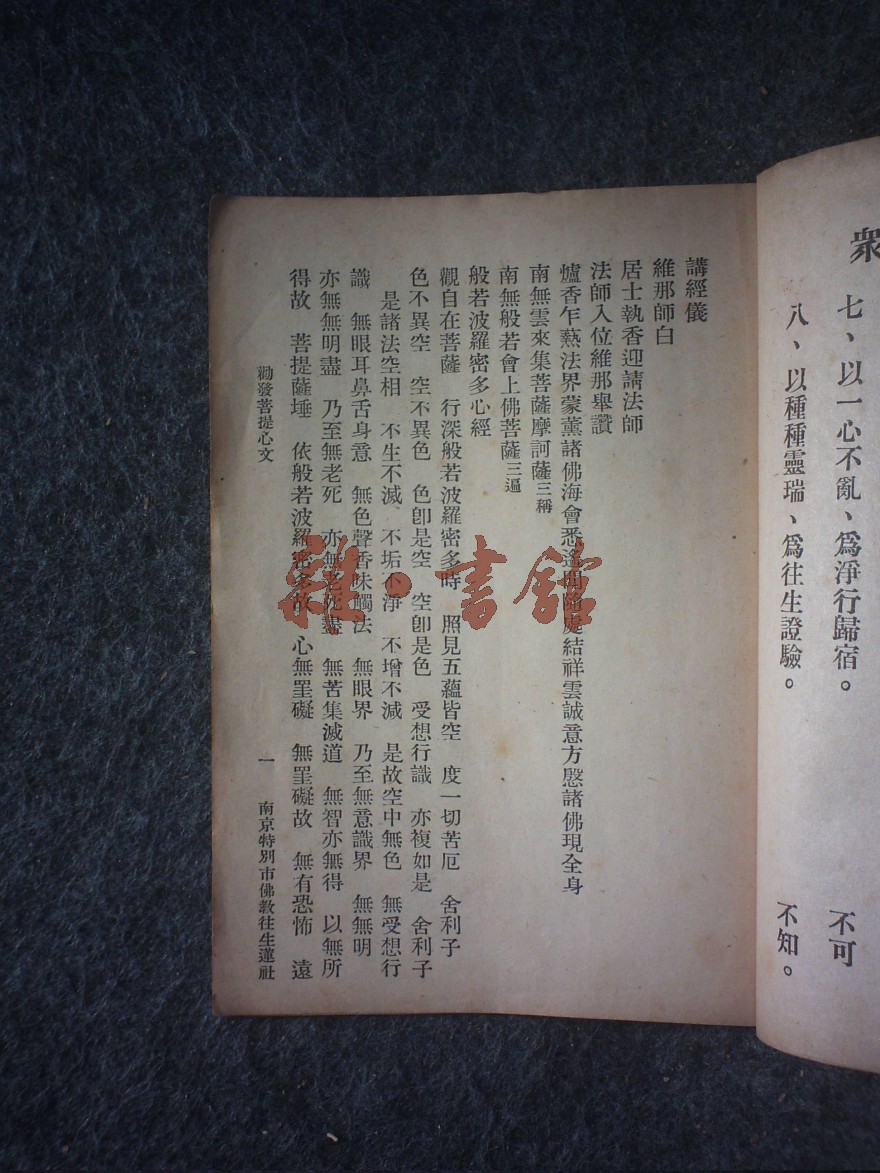 衆
七、以一心不亂、爲淨行歸宿。 不可
八、以種種靈瑞、爲往生證驗。 不知。
講經儀
維那師白
居士執香迎請法師
法師入位維那舉讚
爐香乍爇法界蒙薰諸佛海會悉遙聞隨處結祥雲誠意方慇諸佛現全身
南無雲來集菩薩摩訶薩三稱
南無般若會上佛菩薩三遍
般若波羅密多心經
觀自在菩薩 行深般若波羅密多時 照見五蘊皆空 度一切苦厄 舍利子
色不異空 空不異色 色卽是空 空卽是色 受想行識 亦複如是 舍利子
是諸法空相 不生不滅 不垢不淨 不增不減 是故空中無色 無受想行
識 無眼耳鼻舌身意 無色聲香味觸法 無眼界 乃至無意識界 無無明
亦無無明盡 乃至無老死 亦無老死盡 無苦集滅道 無智亦無得 以無所
得故 菩提薩埵 依般若波羅密多故 心無罣礙 無罣礙故 無有恐怖 遠
勸發菩提心文 一 南京特別市佛教往生蓮社
雜·書館